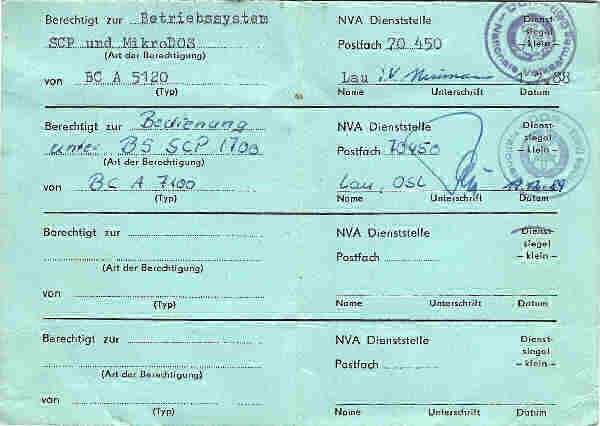 Berechtigt zur Betriebssystem
SCP und MikroDOS
(Art der Berechtigung)
von BC A 5120
(Typ)
NVA Dienststelle
Postfach 70 450
Lau i.V.
Name Unterschrift Datum
Dienst-
siegel
– klein –
Berechtigt zur Bedienung
unter BS SCP 1700
(Art der Berechtigung)
von BC A 7100
(Typ)
NVA Dienststelle
Postfach 70450
Lau, OSL
Name Unterschrift Datum
Dienst-
siegel
– klein –
Berechtigt zur
(Art der Berechtigung)
von
(Typ)
NVA Dienststelle
Postfach
Name Unterschrift Datum
Dienst-
siegel
– klein –
Berechtigt zur
(Art der Berechtigung)
von
(Typ)
NVA Dienststelle
Postfach
Name Unterschrift Datum
Dienst-
siegel
– klein –